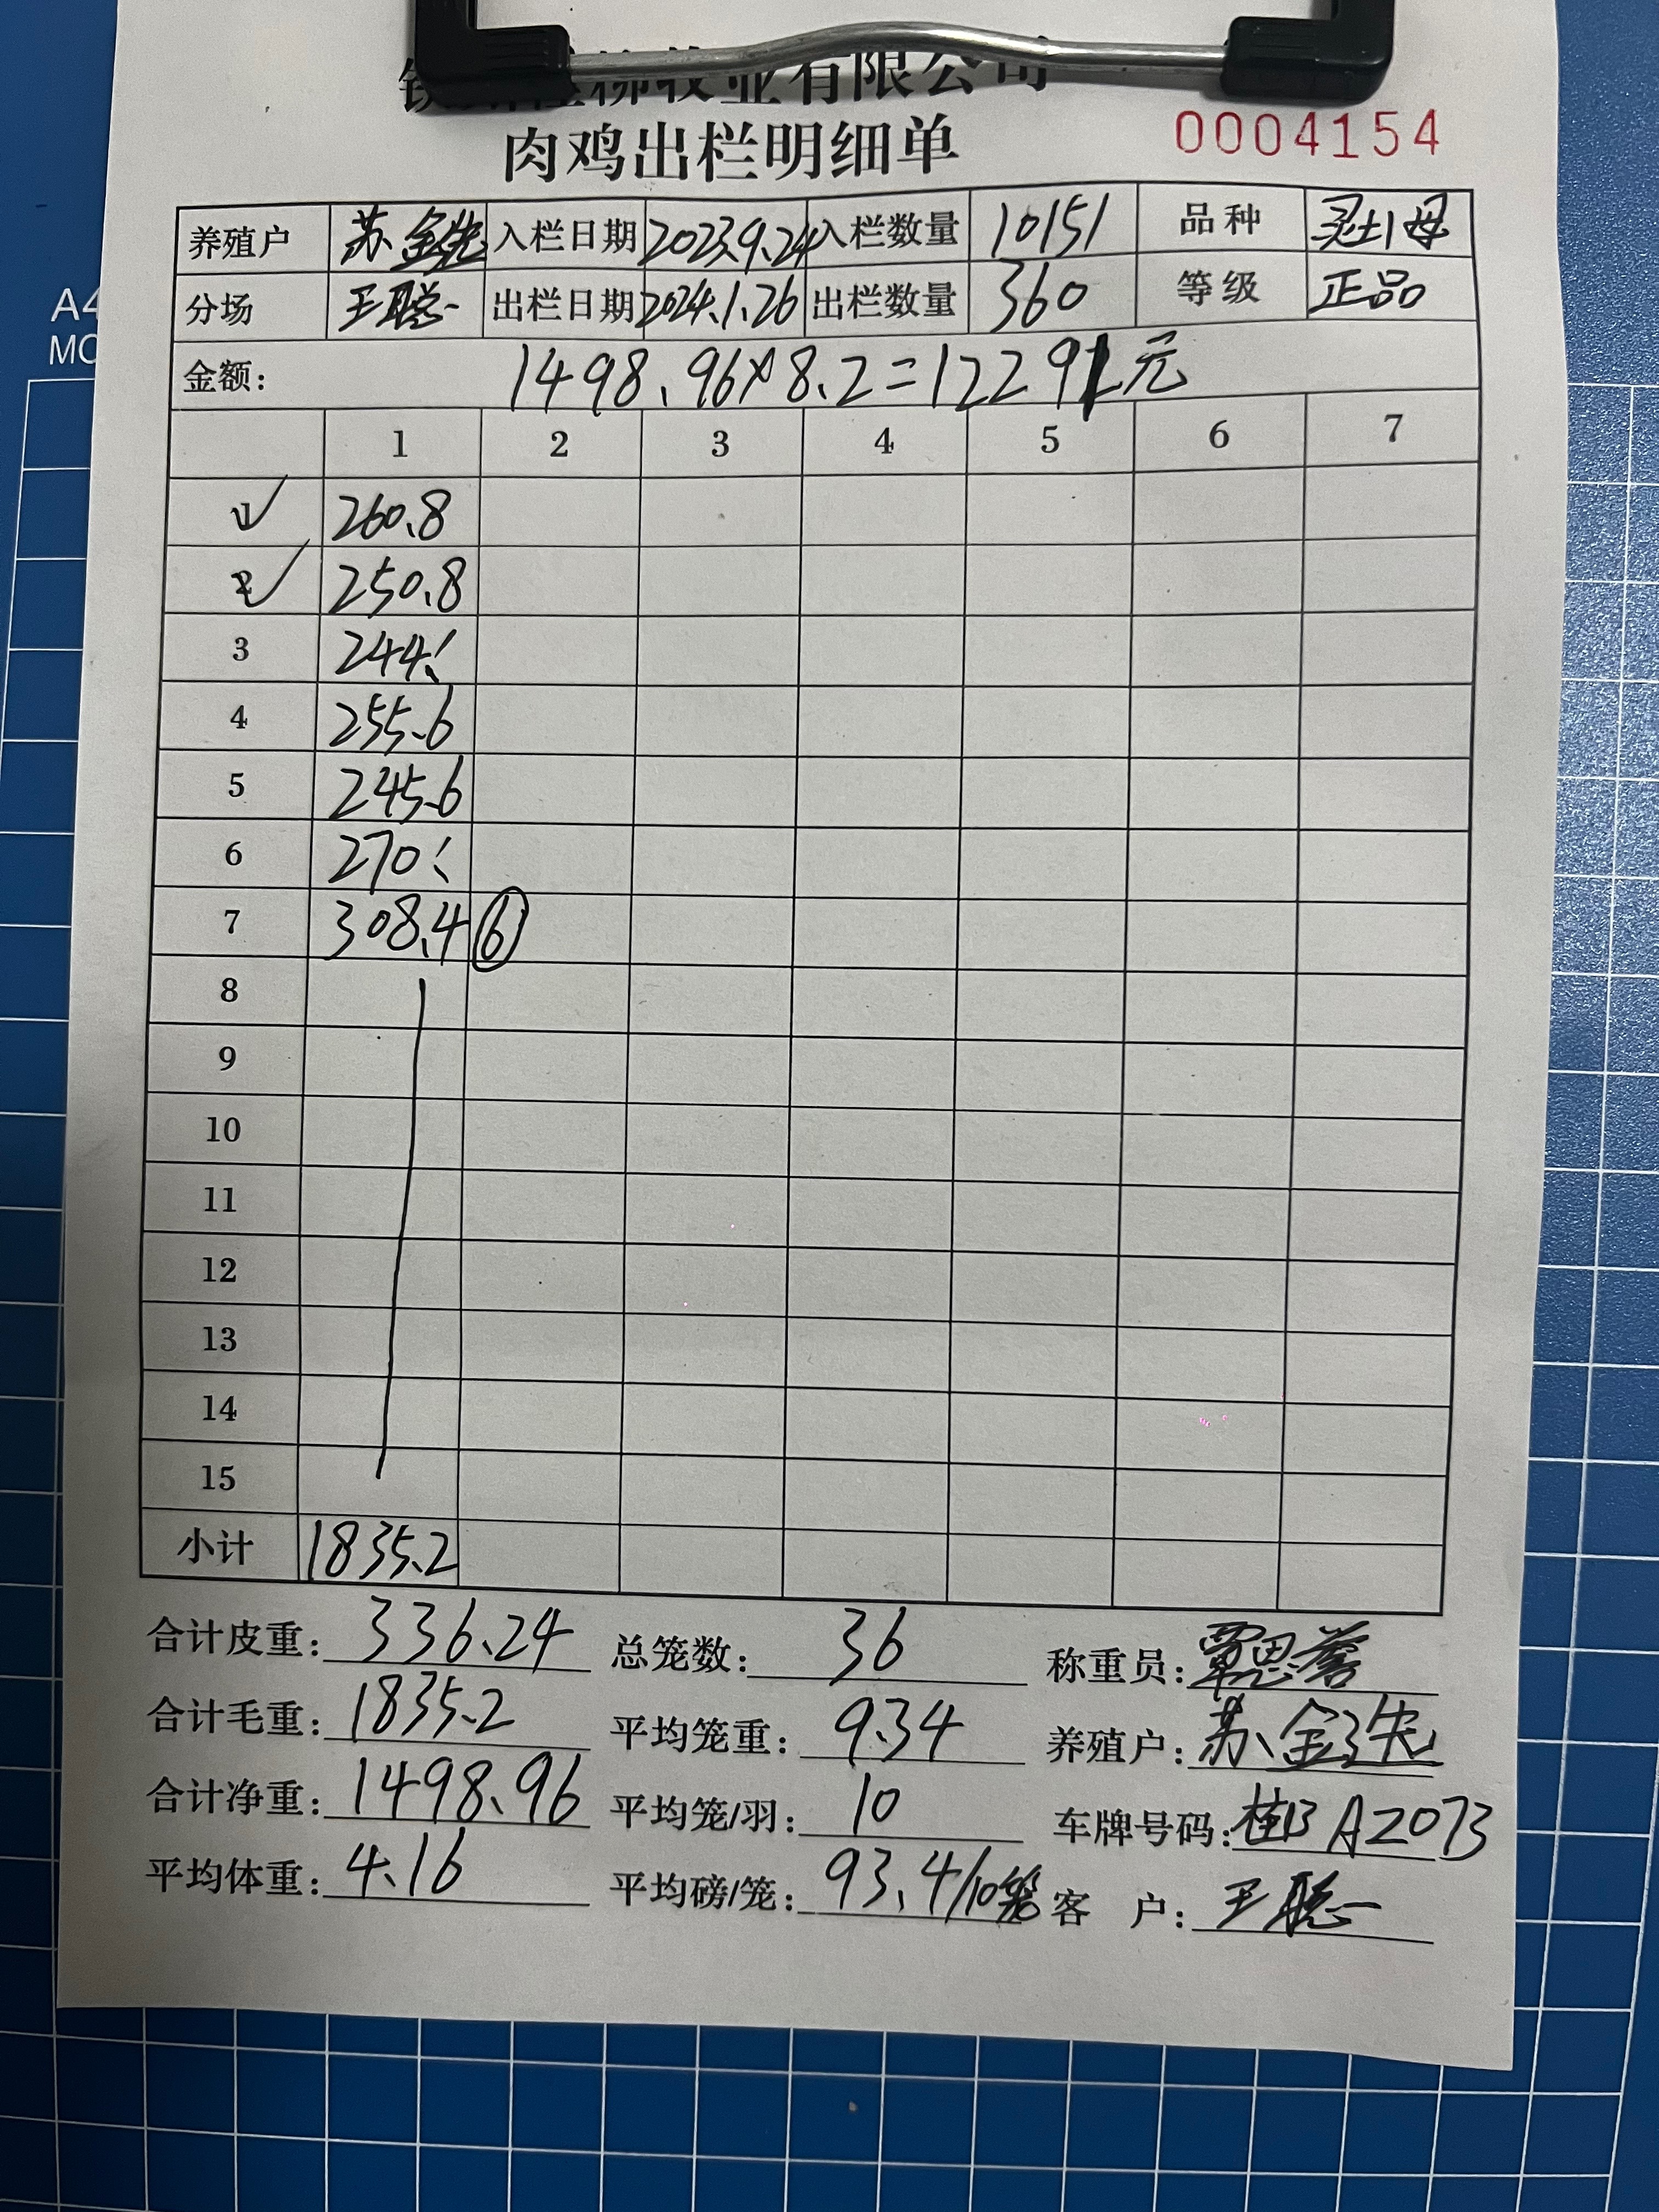 牧业有限公司
肉鸡出栏明细单 0004154
养殖户 苏金先 入栏日期 2023.9.24 入栏数量 10151 品种 灵土1母
分场 王聪 出栏日期 2024.1.26 出栏数量 360 等级 正品
金额: 1498.96×8.2=12291元
1 2 3 4 5 6 7
1 260.8
2 250.8
3 244.
4 255.6
5 245.6
6 270.
7 308.4 ⑥
8
9
10
11
12
13
14
15
小计 1835.2
合计皮重: 336.24 总笼数: 36 称重员: 覃思誉
合计毛重: 1835.2 平均笼重: 9.34 养殖户: 苏金先
合计净重: 1498.96 平均笼/羽: 10 车牌号码: 桂B A2073
平均体重: 4.16 平均磅/笼: 93.4/10笼 客 户: 王聪
A4